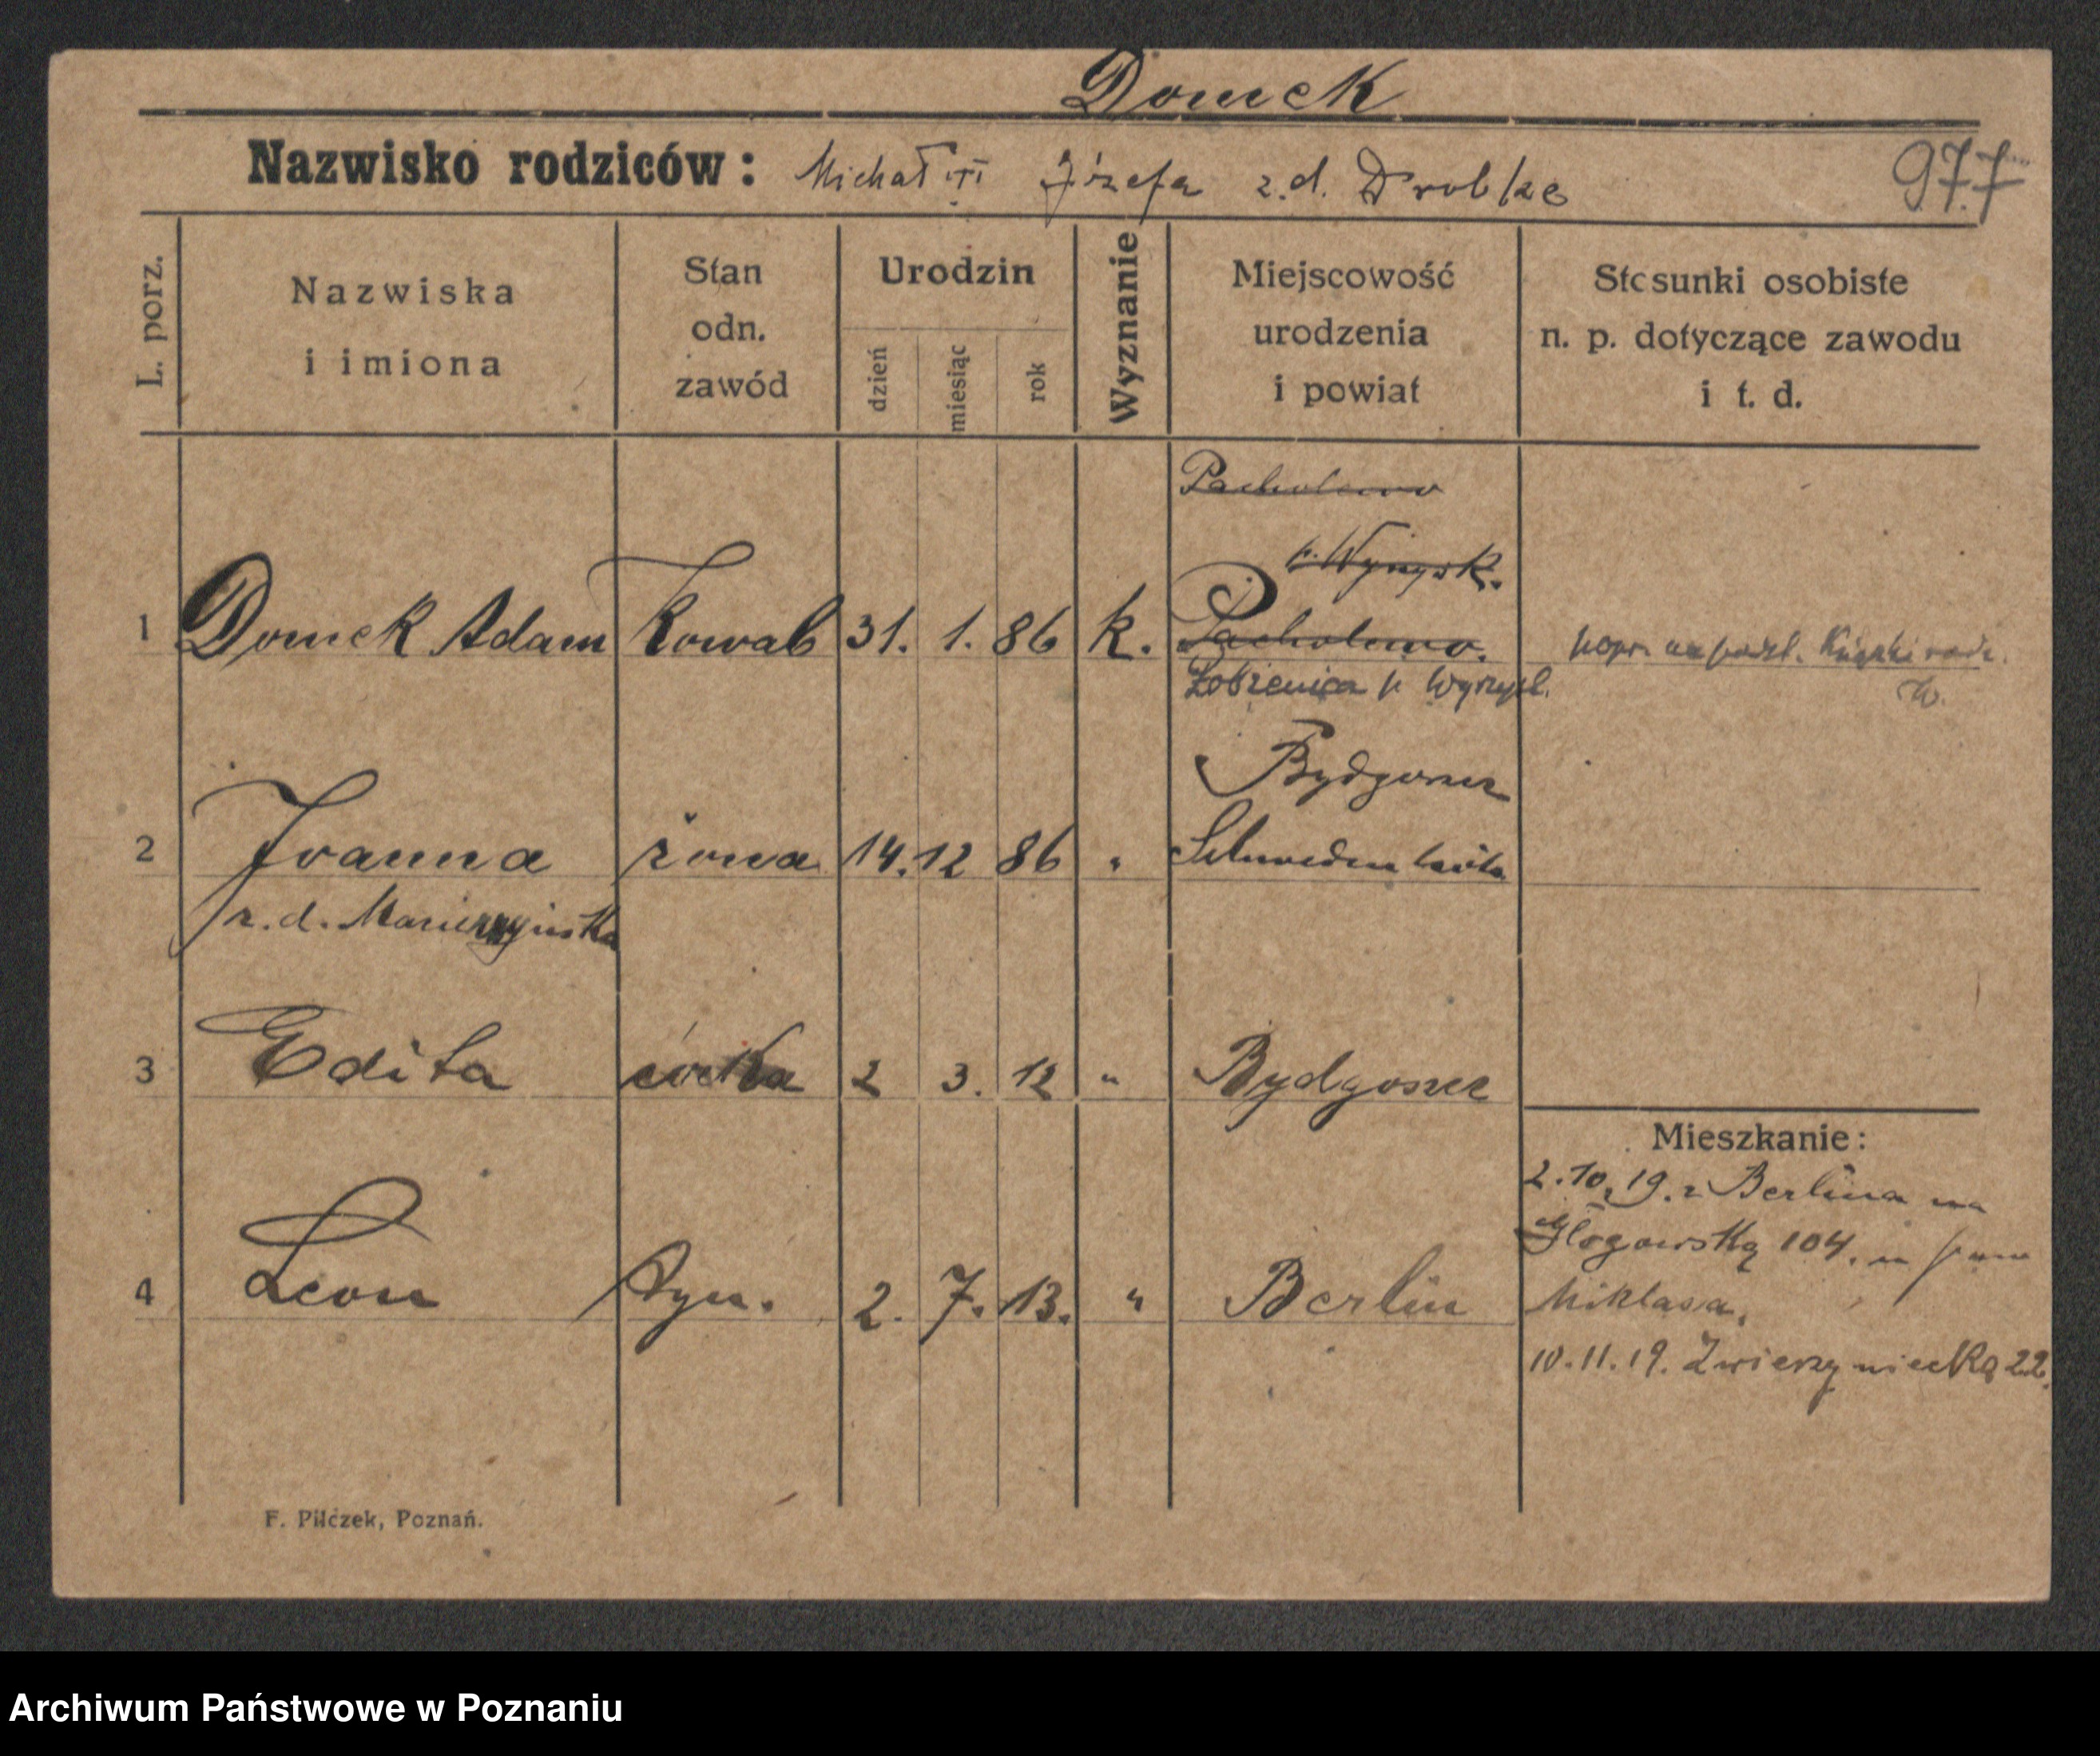 Domek
Nazwisko rodziców: Michał Józefa z.d. Drobke 977
L. porz.
Nazwiska i imiona
Stan odn. zawód
Urodzin
dzień miesiąc rok
Wyznanie
Miejscowość urodzenia i powiat
Stosunki osobiste n. p. dotyczące zawodu i t. d.
Pacholewo
p. Wyrzysk.
1 Domek Adam Kowal 31. 1. 86 k. Pacholewo.
Łobżenica p Wyrzysk.
Bydgoszcz
2 Joanna żona 14. 12 86 "
z. d.
3 Edita córka 2 3. 12 " Bydgoszcz
4 Leon Syn. 2. 7. 13. " Berlin
Mieszkanie:
2.10.19. z Berlina na
Głogowską 104. u
Miklasa.
10.11.19. Zwierzyniecką 22.
F. Pilczek, Poznań.
Archiwum Państwowe w Poznaniu